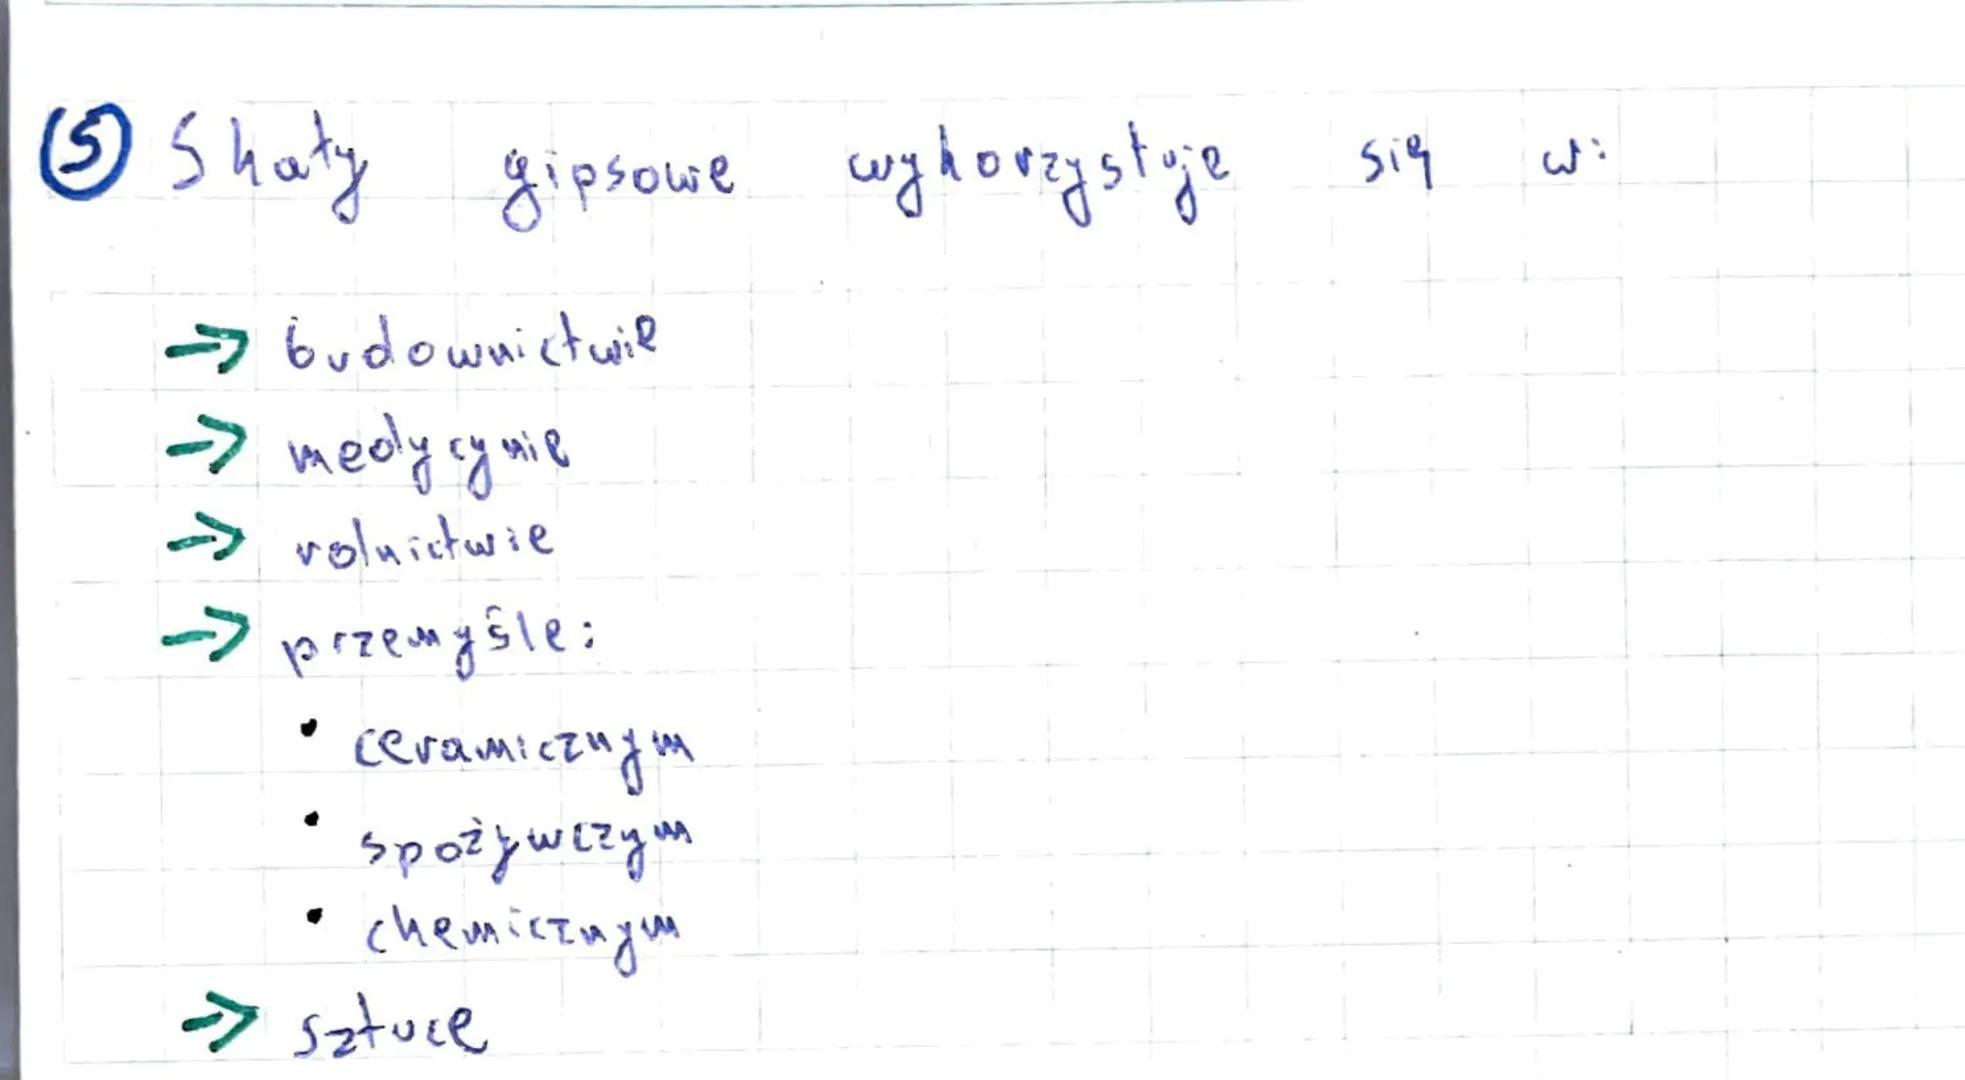 5 Skały gipsowe wykorzystuje się w:
→ budownictwie
→ medycynie
→ rolnictwie
→ przemyśle:
• ceramicznym
• spożywczym
• chemicznym
→ sztuce